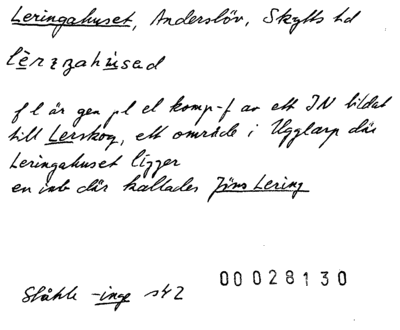 Leringahuset, Anderslöv, Skytts hd
lèrizahùsad
f l är gen pl el komp-f av ett IN bildat
till Lerskog, ett område i Ugglarp där
Leringahuset ligger
en inb där kallades Jöns Lering
Ståhle -inge s42
00028130